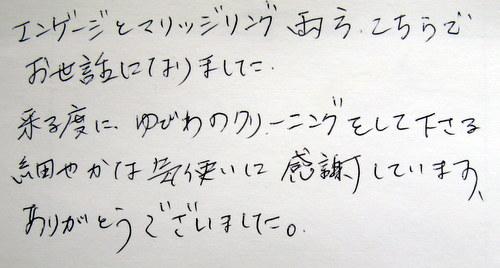 エンゲージとマリッジリング両方、こちらで
お世話になりました。
来る度に、ゆびわのクリーニングをして下さる
細やかな気使いに感謝しています、
ありがとうございました。